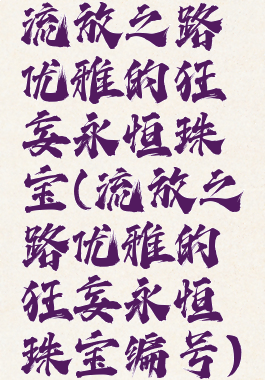 流放之路
优雅的狂
妄永恒珠
宝(流放之
路优雅的
狂妄永恒
珠宝编号)